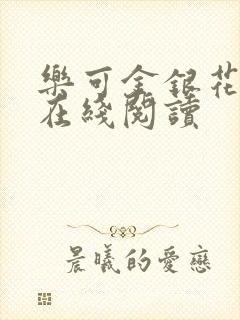 樂可金銀花
在綫閱讀
晨曦的愛戀